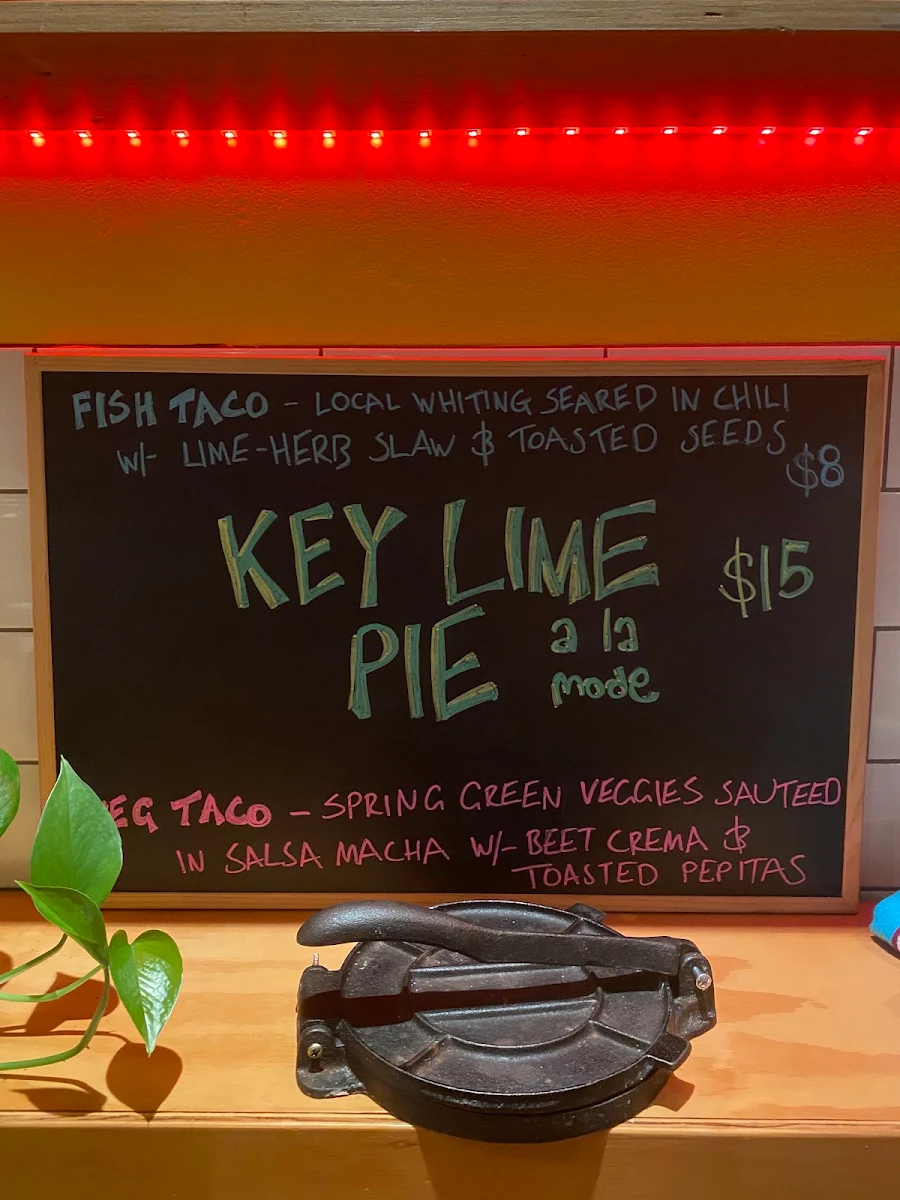 FISH TACO - LOCAL WHITING SEARED IN CHILI
W/- LIME-HERB SLAW & TOASTED SEEDS
$8
KEY LIME
$15
PIE a la
mode
EG TACO - SPRING GREEN VEGGIES SAUTEED
IN SALSA MACHA W/- BEET CREMA &
TOASTED PEPITAS